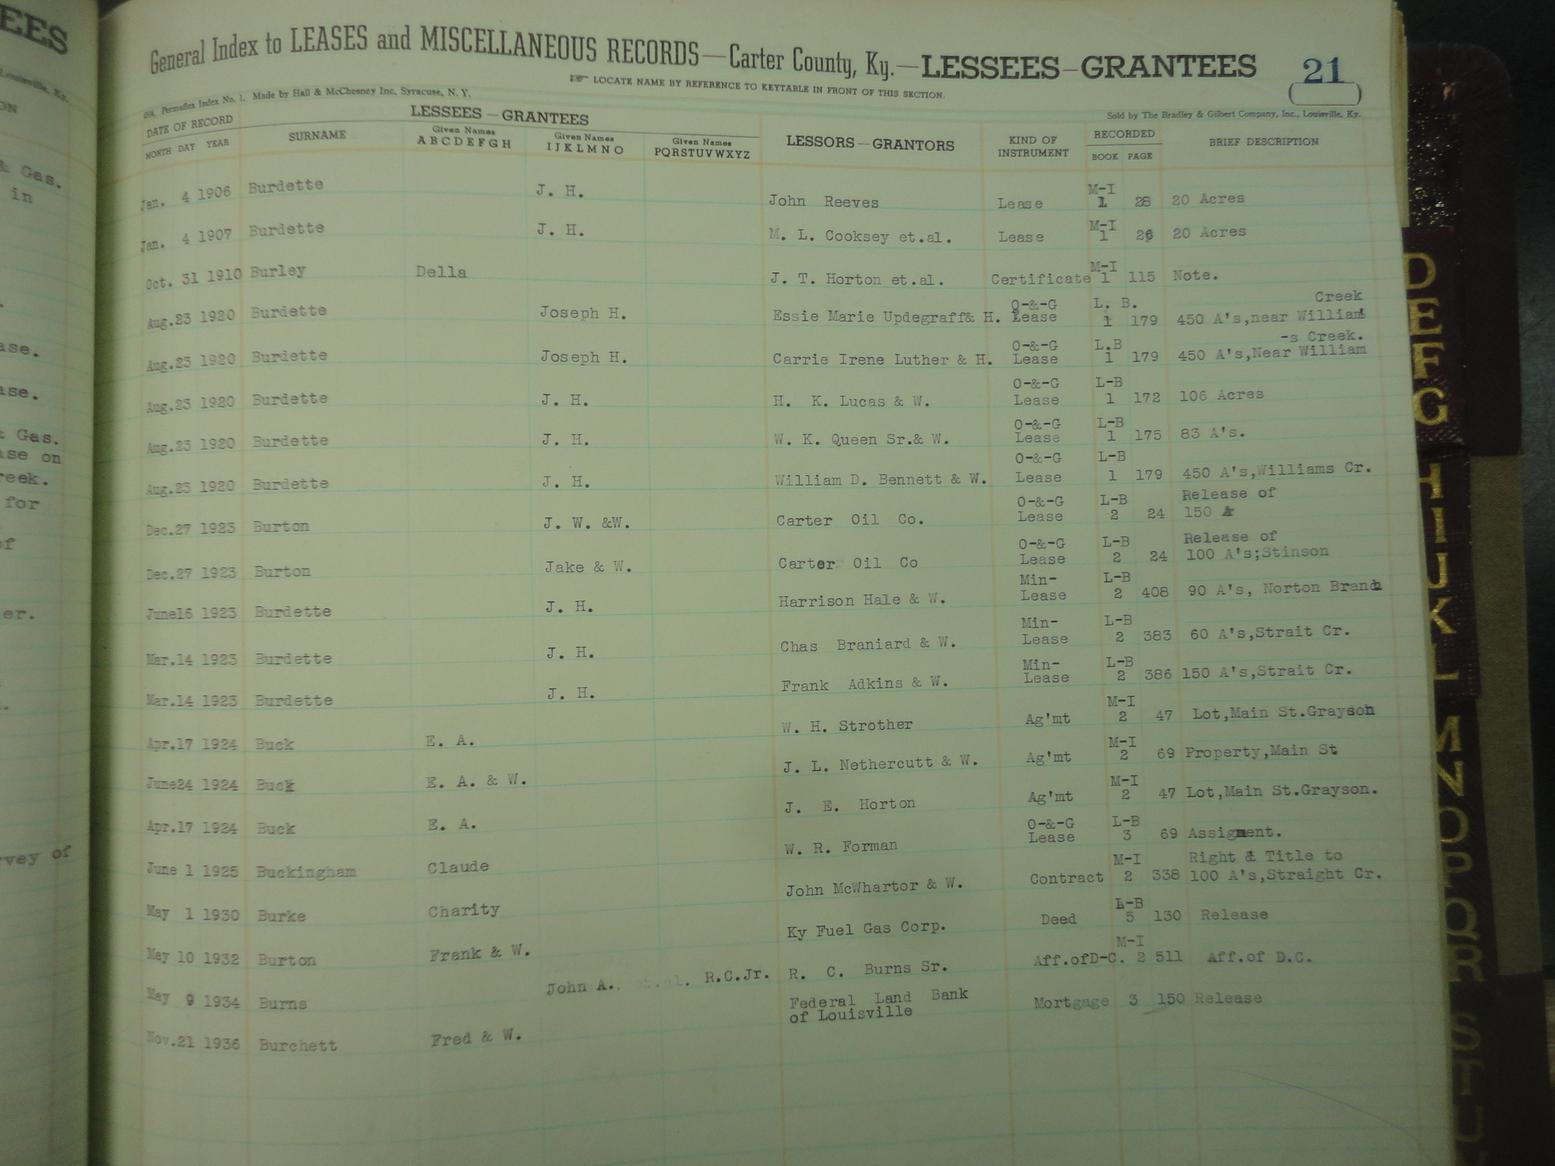 EES
Louisville, Ky.
ON
& Gas.
in
ase.
ase.
& Gas.
ase on
reek.
for
of
er.
rvey of
General Index to LEASES and MISCELLANEOUS RECORDS—Carter County, Ky.—LESSEES-GRANTEES 21
LOCATE NAME BY REFERENCE TO KEYTABLE IN FRONT OF THIS SECTION.
Permaflex Index No. 1. Made by Hall & McChesney Inc, Syracuse, N. Y.
Sold by The Bradley & Gilbert Company, Inc., Louisville, Ky.
DATE OF RECORD LESSEES—GRANTEES LESSORS—GRANTORS KIND OF INSTRUMENT RECORDED BRIEF DESCRIPTION
MONTH DAY YEAR SURNAME Given Names A B C D E F G H Given Names I J K L M N O Given Names PQRSTUVWXYZ BOOK PAGE
Jan. 4 1906 Burdette J. H. John Reeves Lease M-I 1 28 20 Acres
Jan. 4 1907 Burdette J. H. M. L. Cooksey et.al. Lease M-I 1 26 20 Acres
Oct. 31 1910 Burley Della J. T. Horton et.al. Certificate M-I 1 115 Note.
Aug.23 1920 Burdette Joseph H. Essie Marie Updegraff& H. O-&-G Lease L. B. 1 179 450 A's,near William Creek
Aug.23 1920 Burdette Joseph H. Carrie Irene Luther & H. O-&-G Lease L.B 1 179 450 A's,Near William -s Creek.
Aug.23 1920 Burdette J. H. H. K. Lucas & W. O-&-G Lease L-B 1 172 106 Acres
Aug.23 1920 Burdette J. H. W. K. Queen Sr.& W. O-&-G Lease L-B 1 175 83 A's.
Aug.23 1920 Burdette J. H. William D. Bennett & W. O-&-G Lease L-B 1 179 450 A's,Williams Cr.
Dec.27 1923 Burton J. W. &W. Carter Oil Co. O-&-G Lease L-B 2 24 Release of 150 A
Dec.27 1923 Burton Jake & W. Carter Oil Co O-&-G Lease L-B 2 24 Release of 100 A's;Stinson
June16 1923 Burdette J. H. Harrison Hale & W. Min- Lease L-B 2 408 90 A's, Norton Branch
Mar.14 1923 Burdette J. H. Chas Braniard & W. Min- Lease L-B 2 383 60 A's,Strait Cr.
Mar.14 1923 Burdette J. H. Frank Adkins & W. Min- Lease L-B 2 386 150 A's,Strait Cr.
Apr.17 1924 Buck E. A. W. H. Strother Ag'mt M-I 2 47 Lot,Main St.Grayson
June24 1924 Buck E. A. & W. J. L. Nethercutt & W. Ag'mt M-I 2 69 Property,Main St
Apr.17 1924 Buck E. A. J. E. Horton Ag'mt M-I 2 47 Lot,Main St.Grayson.
June 1 1925 Buckingham Claude W. R. Forman O-&-G Lease L-B 3 69 Assigment.
May 1 1930 Burke Charity John McWhartor & W. Contract M-I 2 338 Right & Title to 100 A's,Straight Cr.
May 10 1932 Burton Frank & W. Ky Fuel Gas Corp. Deed L-B 5 130 Release
May 9 1934 Burns John A. R.C.Jr. R. C. Burns Sr. Aff.ofD-C. M-I 2 511 Aff.of D.C.
Nov.21 1936 Burchett Fred & W. Federal Land Bank of Louisville Mortgage 3 150 Release
D
E
F
G
H
I
J
K
L
M
N
O
P
Q
R
S
T
U